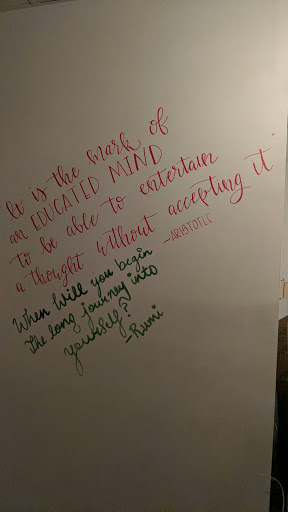 It is the mark of
an EDUCATED MIND
to be able to entertain
a thought without accepting it
-ARISTOTLE
When Will you begin
The long journey into
yourself?
-Rumi